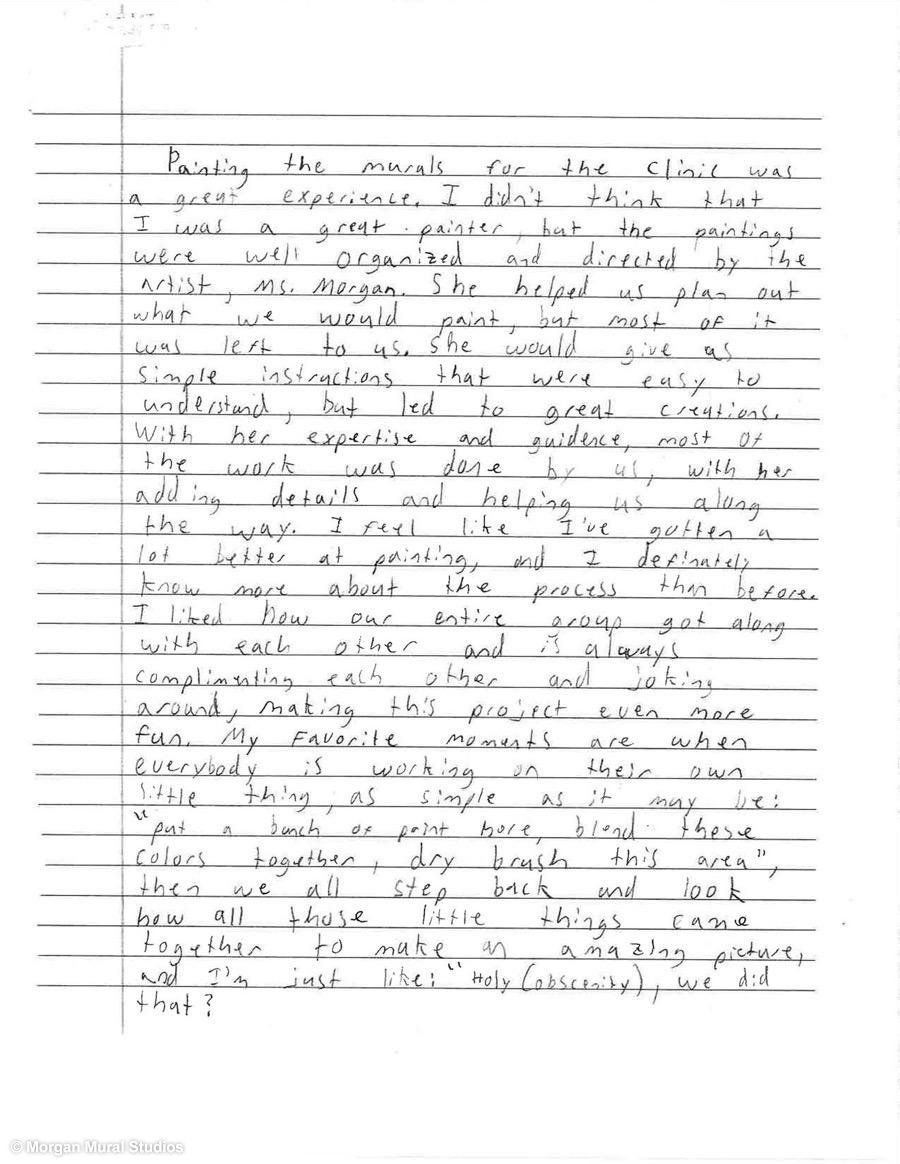 Painting the murals for the clinic was
a great experience. I didn't think that
I was a great painter, but the paintings
were well organized and directed by the
artist, Ms. Morgan. She helped us plan out
what we would paint, but most of it
was left to us. She would give us
simple instructions that were easy to
understand, but led to great creations.
With her expertise and guidence, most of
the work was done by us, with her
adding details and helping us along
the way. I feel like I've gotten a
lot better at painting, and I definately
know more about the process than before.
I liked how our entire group got along
with each other and is always
complimenting each other and joking
around, making this project even more
fun. My favorite moments are when
everybody is working on their own
little thing, as simple as it may be:
"put a bunch of paint here, blend these
colors together, dry brush this area",
then we all step back and look
how all those little things came
together to make an amazing picture,
and I'm just like: "Holy (obscenity), we did
that?
© Morgan Mural Studios